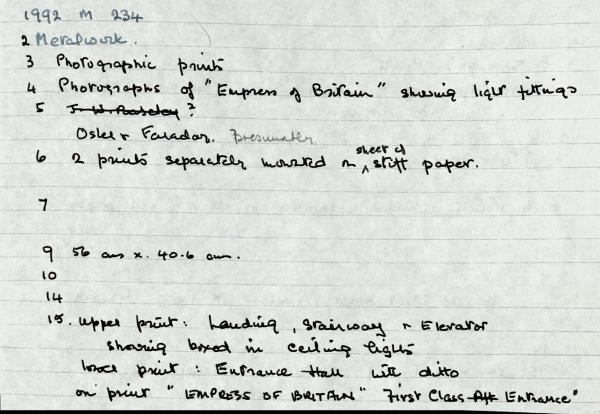 1992 M 234
2 Metalwork.
3 Photographic prints
4 Photographs of "Empress of Britain" showing light fittings
5 J. W. ?
Osler & Faraday. Presumably
6 2 prints separately mounted on sheet of stiff paper.
7
9 56 cms x. 40.6 cms.
10
14
15. Upper print: Landing, Stairway & Elevator
showing boxed in ceiling lights
lower print: Entrance Hall with ditto
on print "EMPRESS OF BRITAIN" First Class Aft Entrance"